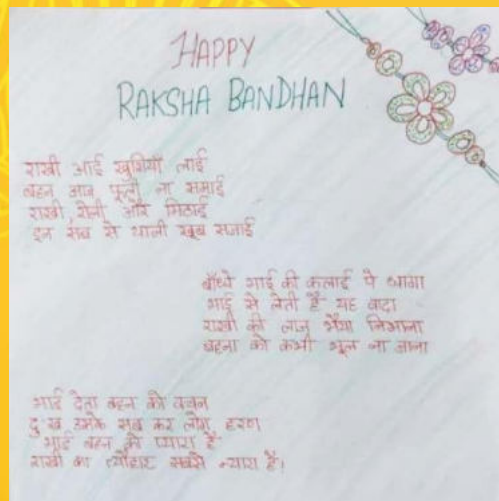 HAPPY
RAKSHA BANDHAN
राखी आई खुशियाँ लाई
बहन आज फूली ना समाई
राखी, रोली और मिठाई
इन सब से थाली खूब सजाई
बाँधे भाई की कलाई पे धागा
भाई से लेती है यह वादा
राखी की लाज भैया निभाना
बहना को कभी भूल ना जाना
भाई देता बहन को वचन
दुःख उसके सब कर लेगा हरण
भाई बहन को प्यारा है
राखी का त्यौहार सबसे न्यारा है।